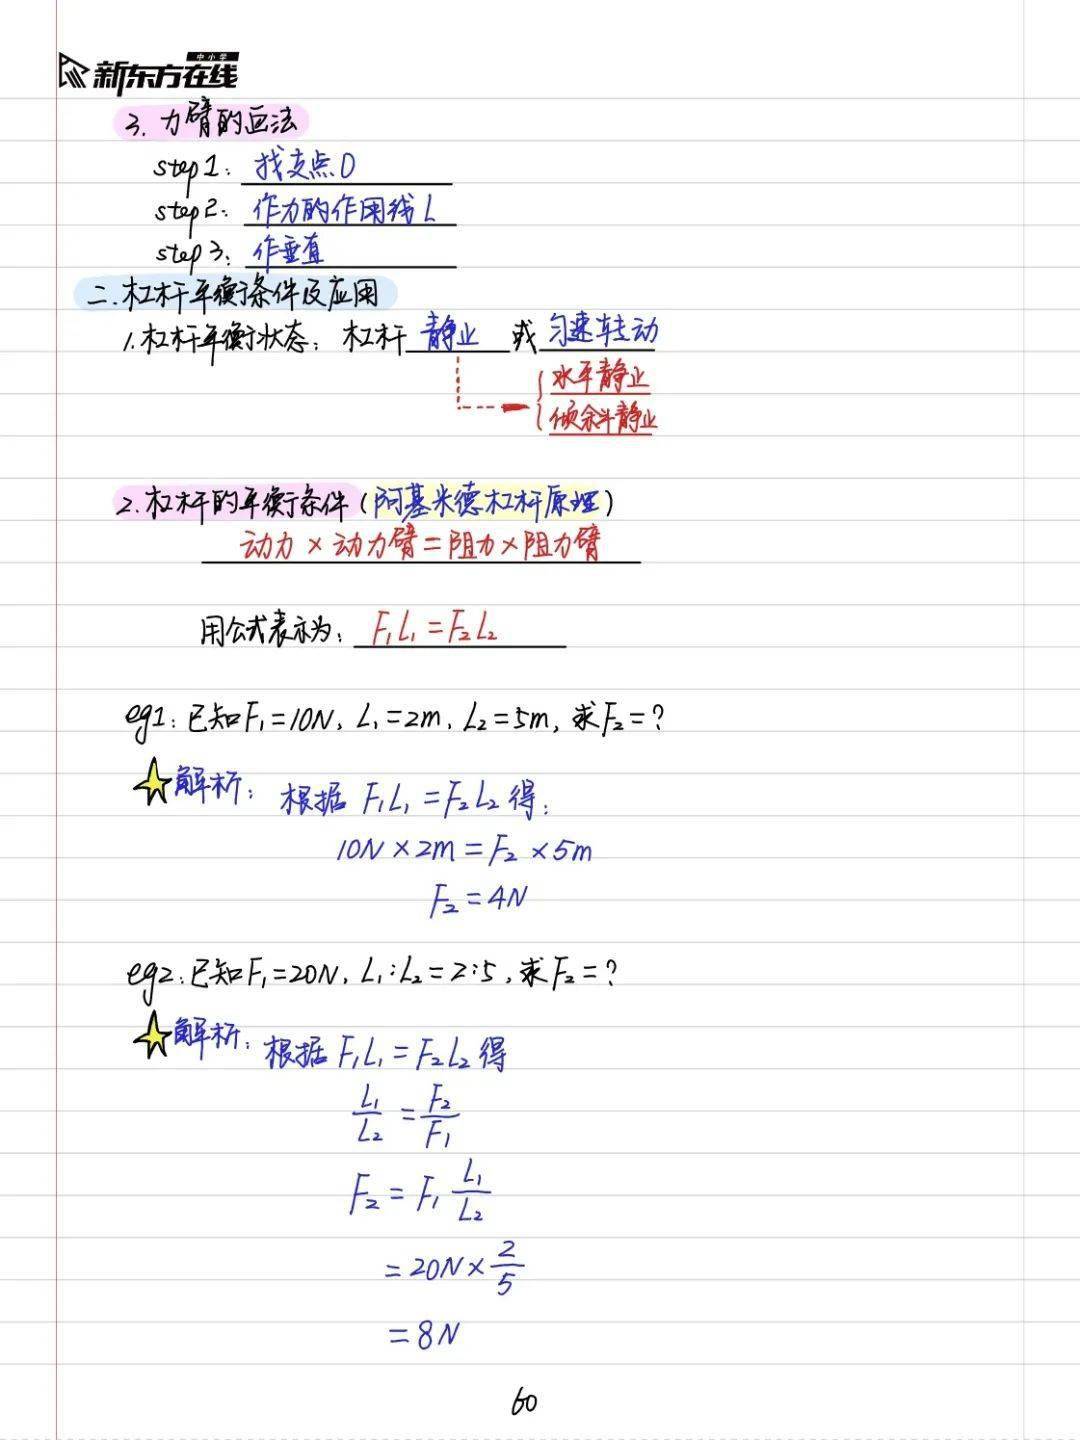 中小学
新东方在线
3. 力臂的画法
step1: 找支点O
step2: 作力的作用线L
step3: 作垂直
二.杠杆平衡条件及应用
1.杠杆平衡状态: 杠杆 静止 或 匀速转动
水平静止
倾斜静止
2.杠杆的平衡条件(阿基米德杠杆原理)
动力×动力臂=阻力×阻力臂
用公式表示为: F₁L₁=F₂L₂
eg1:已知F₁=10N, L₁=2m, L₂=5m, 求F₂=?
解析: 根据 F₁L₁=F₂L₂ 得:
10N×2m=F₂×5m
F₂=4N
eg2:已知F₁=20N, L₁:L₂=2:5, 求F₂=?
解析: 根据 F₁L₁=F₂L₂ 得
L₁/L₂=F₂/F₁
F₂=F₁ L₁/L₂
=20N×2/5
=8N
60